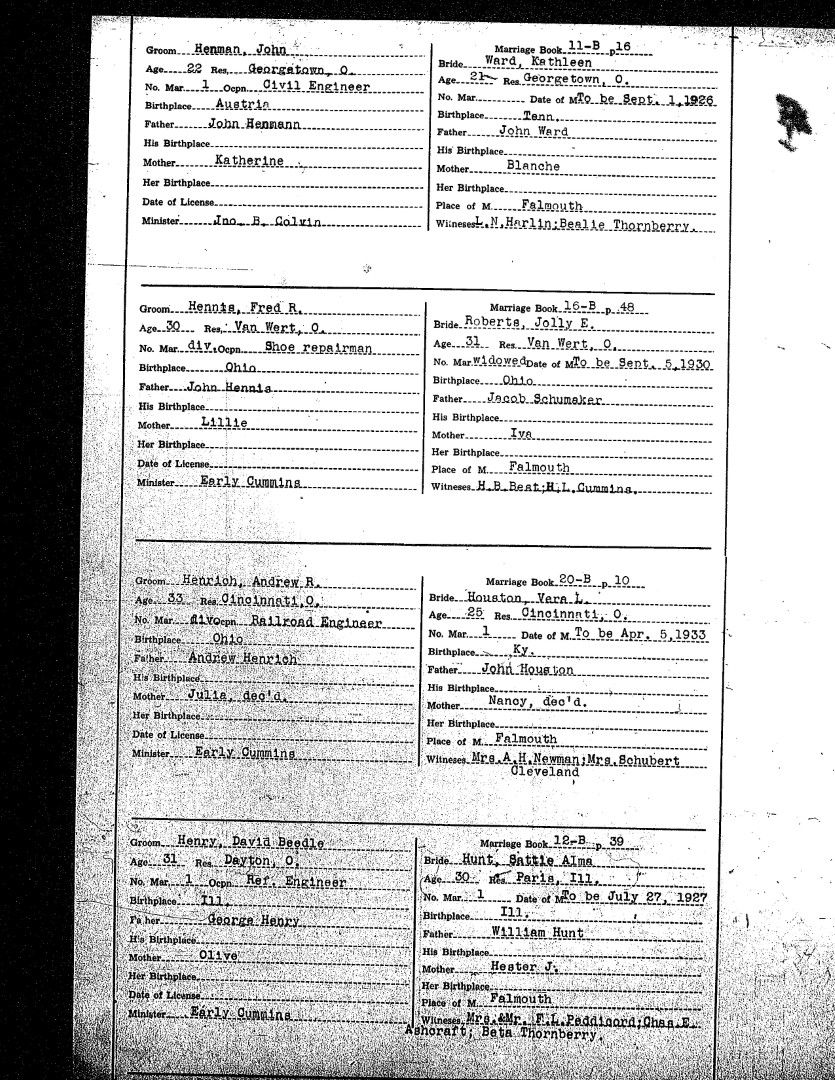 Groom Henman, John
Age 22 Res. Georgetown, O.
No. Mar. 1 Ocpn. Civil Engineer
Birthplace Austria
Father John Henmann
His Birthplace
Mother Katherine
Her Birthplace
Date of License
Minister Jno. B. Colvin
Marriage Book 11-B p16
Bride Ward, Kathleen
Age 21 Res Georgetown, O.
No. Mar. Date of M To be Sept. 1,1926
Birthplace Tenn.
Father John Ward
His Birthplace
Mother Blanche
Her Birthplace
Place of M. Falmouth
Witnesses L.N.Harlin;Bealie Thornberry.
Groom Hennis, Fred R.
Age 30 Res. Van Wert, O.
No. Mar. div. Ocpn. Shoe repairman
Birthplace Ohio
Father John Hennis
His Birthplace
Mother Lillie
Her Birthplace
Date of License
Minister Early Cummins
Marriage Book 16-B p. 48
Bride Roberts, Jolly E.
Age 31 Res. Van Wert, O.
No. Mar. widowed Date of M To be Sept. 5,1930
Birthplace Ohio
Father Jacob Schumaker
His Birthplace
Mother Iva
Her Birthplace
Place of M. Falmouth
Witnesses H.B.Best;H.L.Cummins.
Groom Henrich, Andrew R.
Age 33 Res Cincinnati,O.
No. Mar. div Ocpn. Railroad Engineer
Birthplace Ohio
Father Andrew Henrich
His Birthplace
Mother Julia, dec'd.
Her Birthplace
Date of License
Minister Early Cummins
Marriage Book 20-B p. 10
Bride Houston, Vera L.
Age 25 Res. Cincinnati, O.
No. Mar. 1 Date of M. To be Apr. 5,1933
Birthplace Ky.
Father John Houston
His Birthplace
Mother Nancy, dec'd.
Her Birthplace
Place of M. Falmouth
Witnesses Mrs.A.H.Newman;Mrs.Schubert
Cleveland
Groom Henry, David Beedle
Age 31 Res. Dayton, O.
No. Mar. 1 Ocpn. Ref. Engineer
Birthplace Ill.
Father George Henry
His Birthplace
Mother Olive
Her Birthplace
Date of License
Minister Early Cummins
Marriage Book 12-B p. 39
Bride Hunt, Sattie Alma
Age 30 Res. Paris, Ill.
No. Mar. 1 Date of M To be July 27, 1927
Birthplace Ill.
Father William Hunt
His Birthplace
Mother Hester J.
Her Birthplace
Place of M. Falmouth
Witnesses Mrs.&Mr. F.L.Peddicord;Chas.E.
Ashcraft; Beta Thornberry.